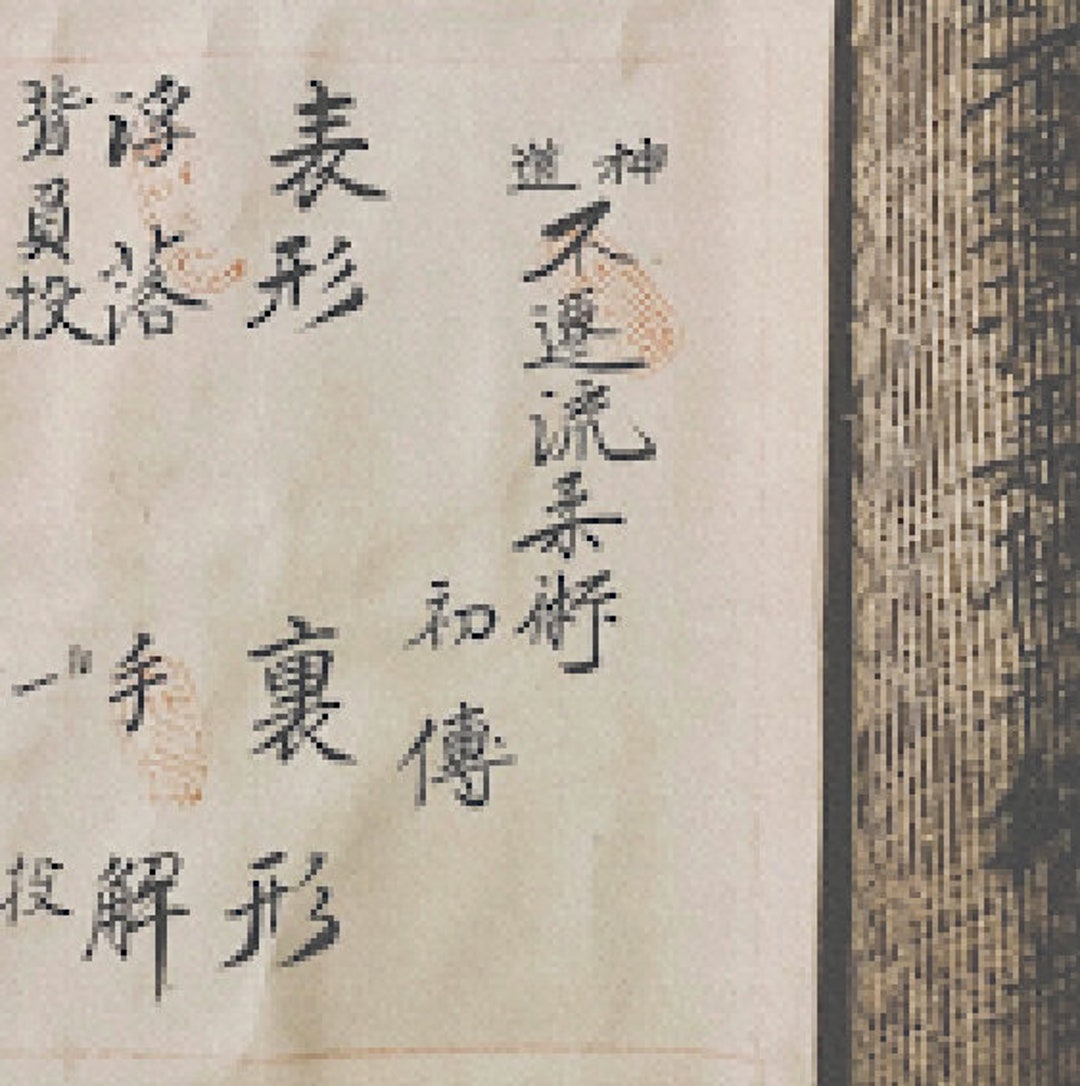 神道
不遷流柔術
初傳
表形
裏形
浮落
手解
背負投
一
投